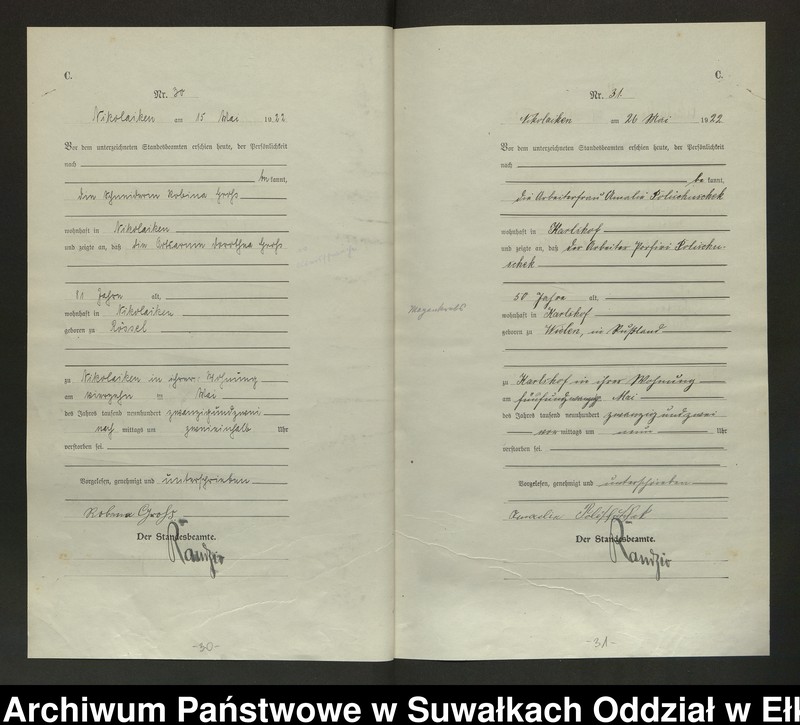 C.
Nr. 30
Nikolaiken am 15 Mai 1922
Vor dem unterzeichneten Standesbeamten erschien heute, der Persönlichkeit
nach
bekannt,
die Schneiderin Robina Groß
wohnhaft in Nikolaiken
und zeigte an, daß die Dorothea Groß
Jahre alt,
wohnhaft in Nikolaiken
geboren zu Rössel
zu Nikolaiken in ihrer Wohnung
am vierzehn Mai
des Jahres tausend neunhundert zwanzigundzwei
nach mittags um zweieinhalb Uhr
verstorben sei.
Vorgelesen, genehmigt und unterschrieben
Robina Groß
Der Standesbeamte.
Randzio
-30-
C.
Nr. 31
Nikolaiken am 26 Mai 1922
Vor dem unterzeichneten Standesbeamten erschien heute, der Persönlichkeit
nach
bekannt,
die Arbeiterfrau Amalie Polischuschek
wohnhaft in Karlshof
und zeigte an, daß der Arbeiter Polischu-
schek
50 Jahre alt,
wohnhaft in Karlshof
Magenkrebs
geboren zu in Rußland
zu Karlshof in ihrer Wohnung
am fünfundzwanzig Mai
des Jahres tausend neunhundert zwanzigundzwei
vor mittags um neun Uhr
verstorben sei.
Vorgelesen, genehmigt und unterschrieben
Amalie
Der Standesbeamte.
Randzio
-31-
Archiwum Państwowe w Suwałkach Oddział w Ełk